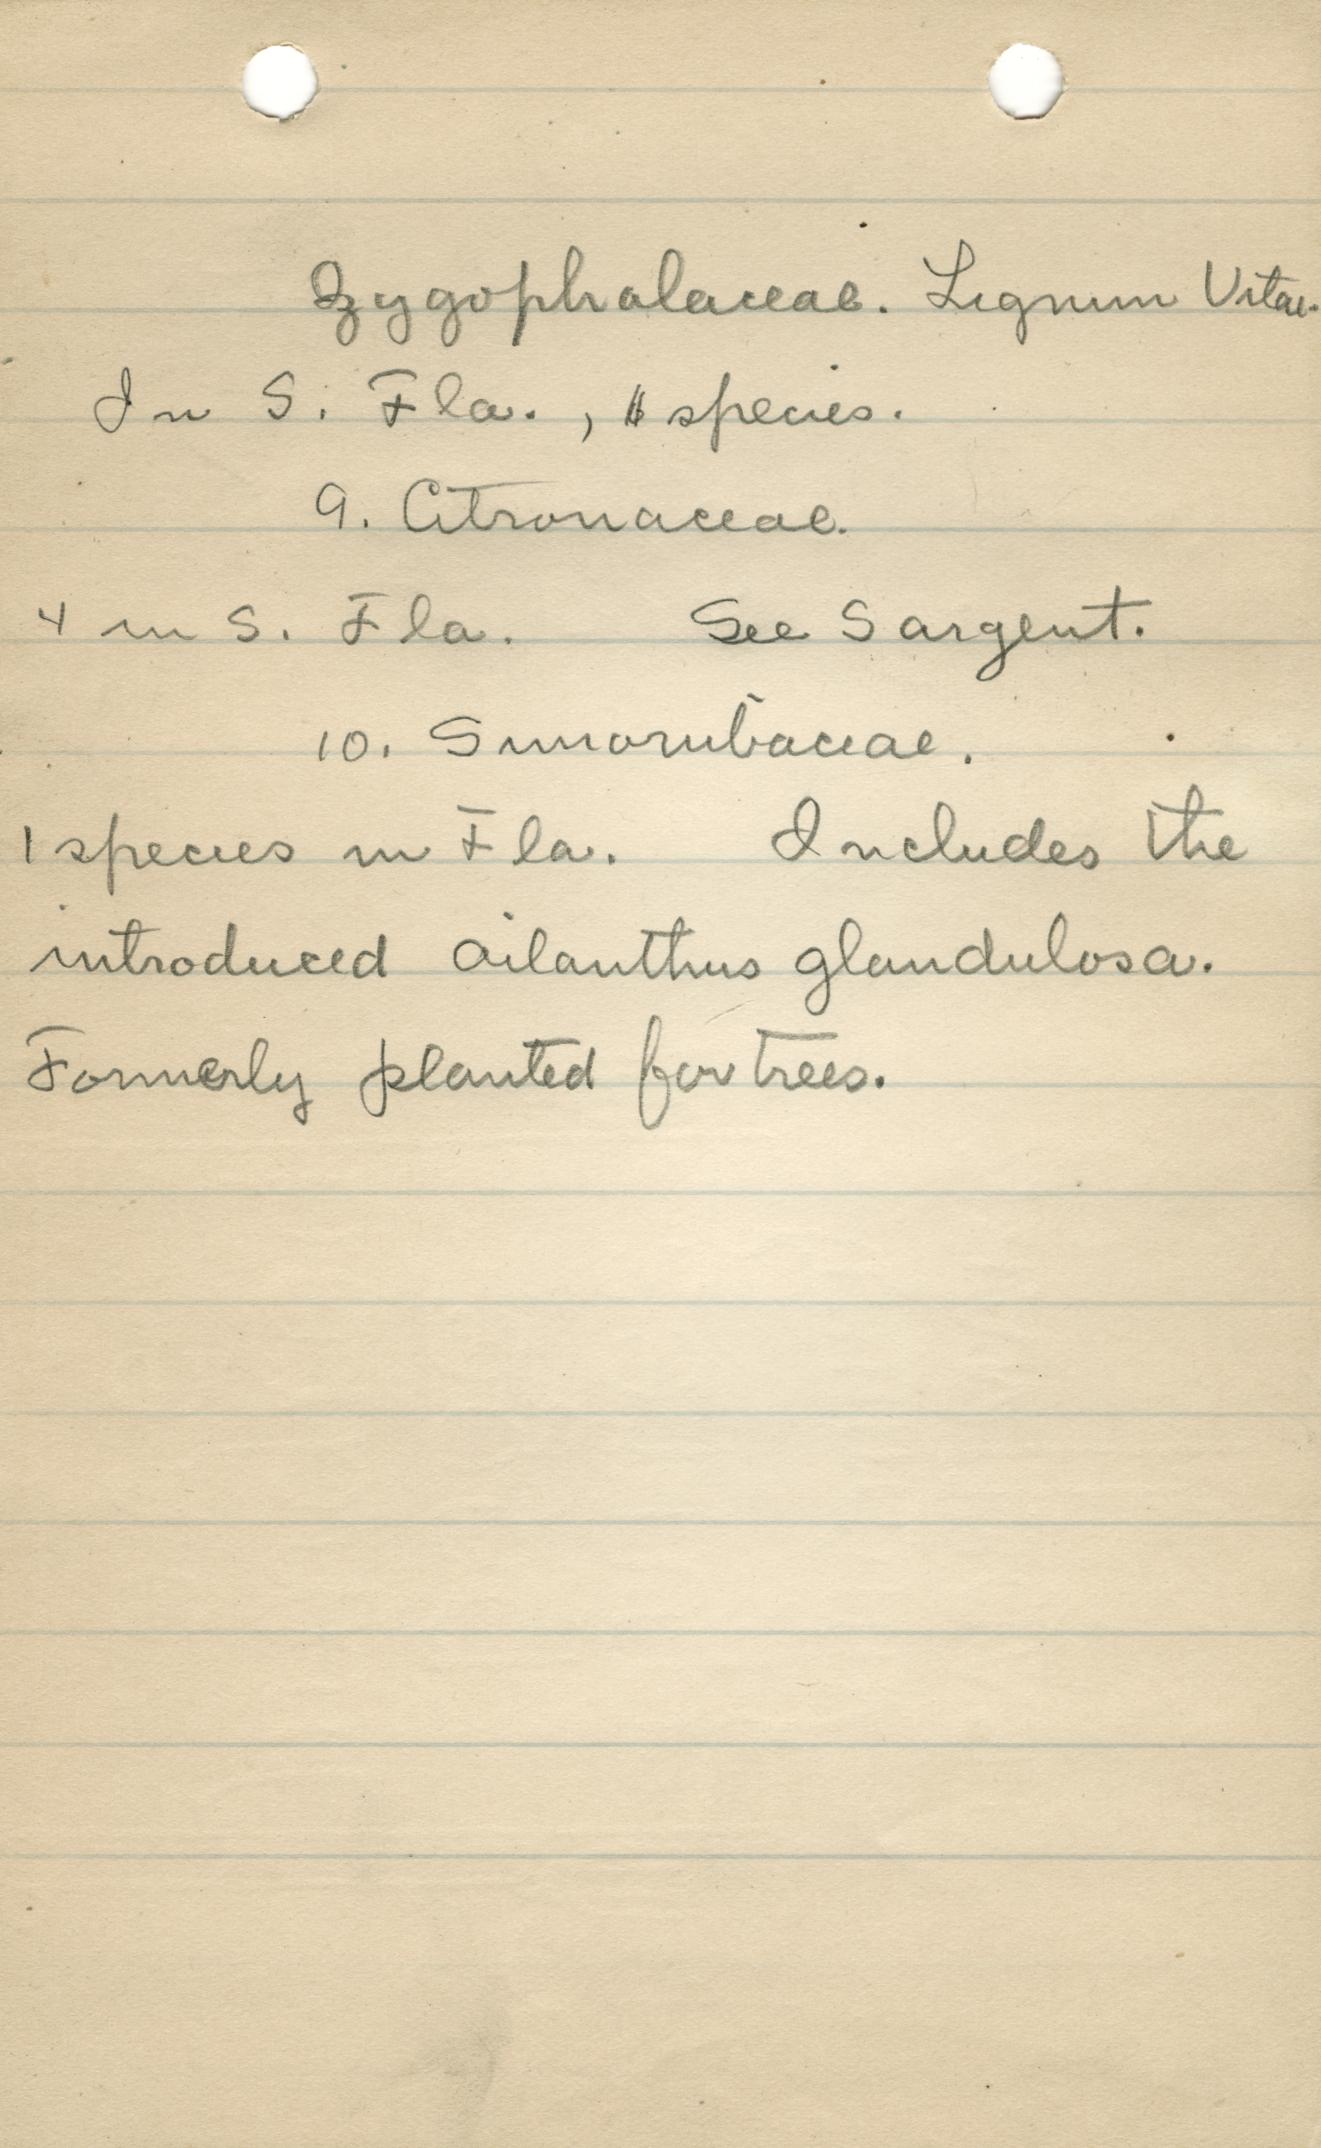 Zygophalaceae. Lignum Vitae.
In S. Fla., species.
9. Citronaceae.
4 in S. Fla. See Sargent.
10. Simorubaceae.
1 species in Fla. Includes the
introduced ailanthus glandulosa.
Formerly planted for trees.